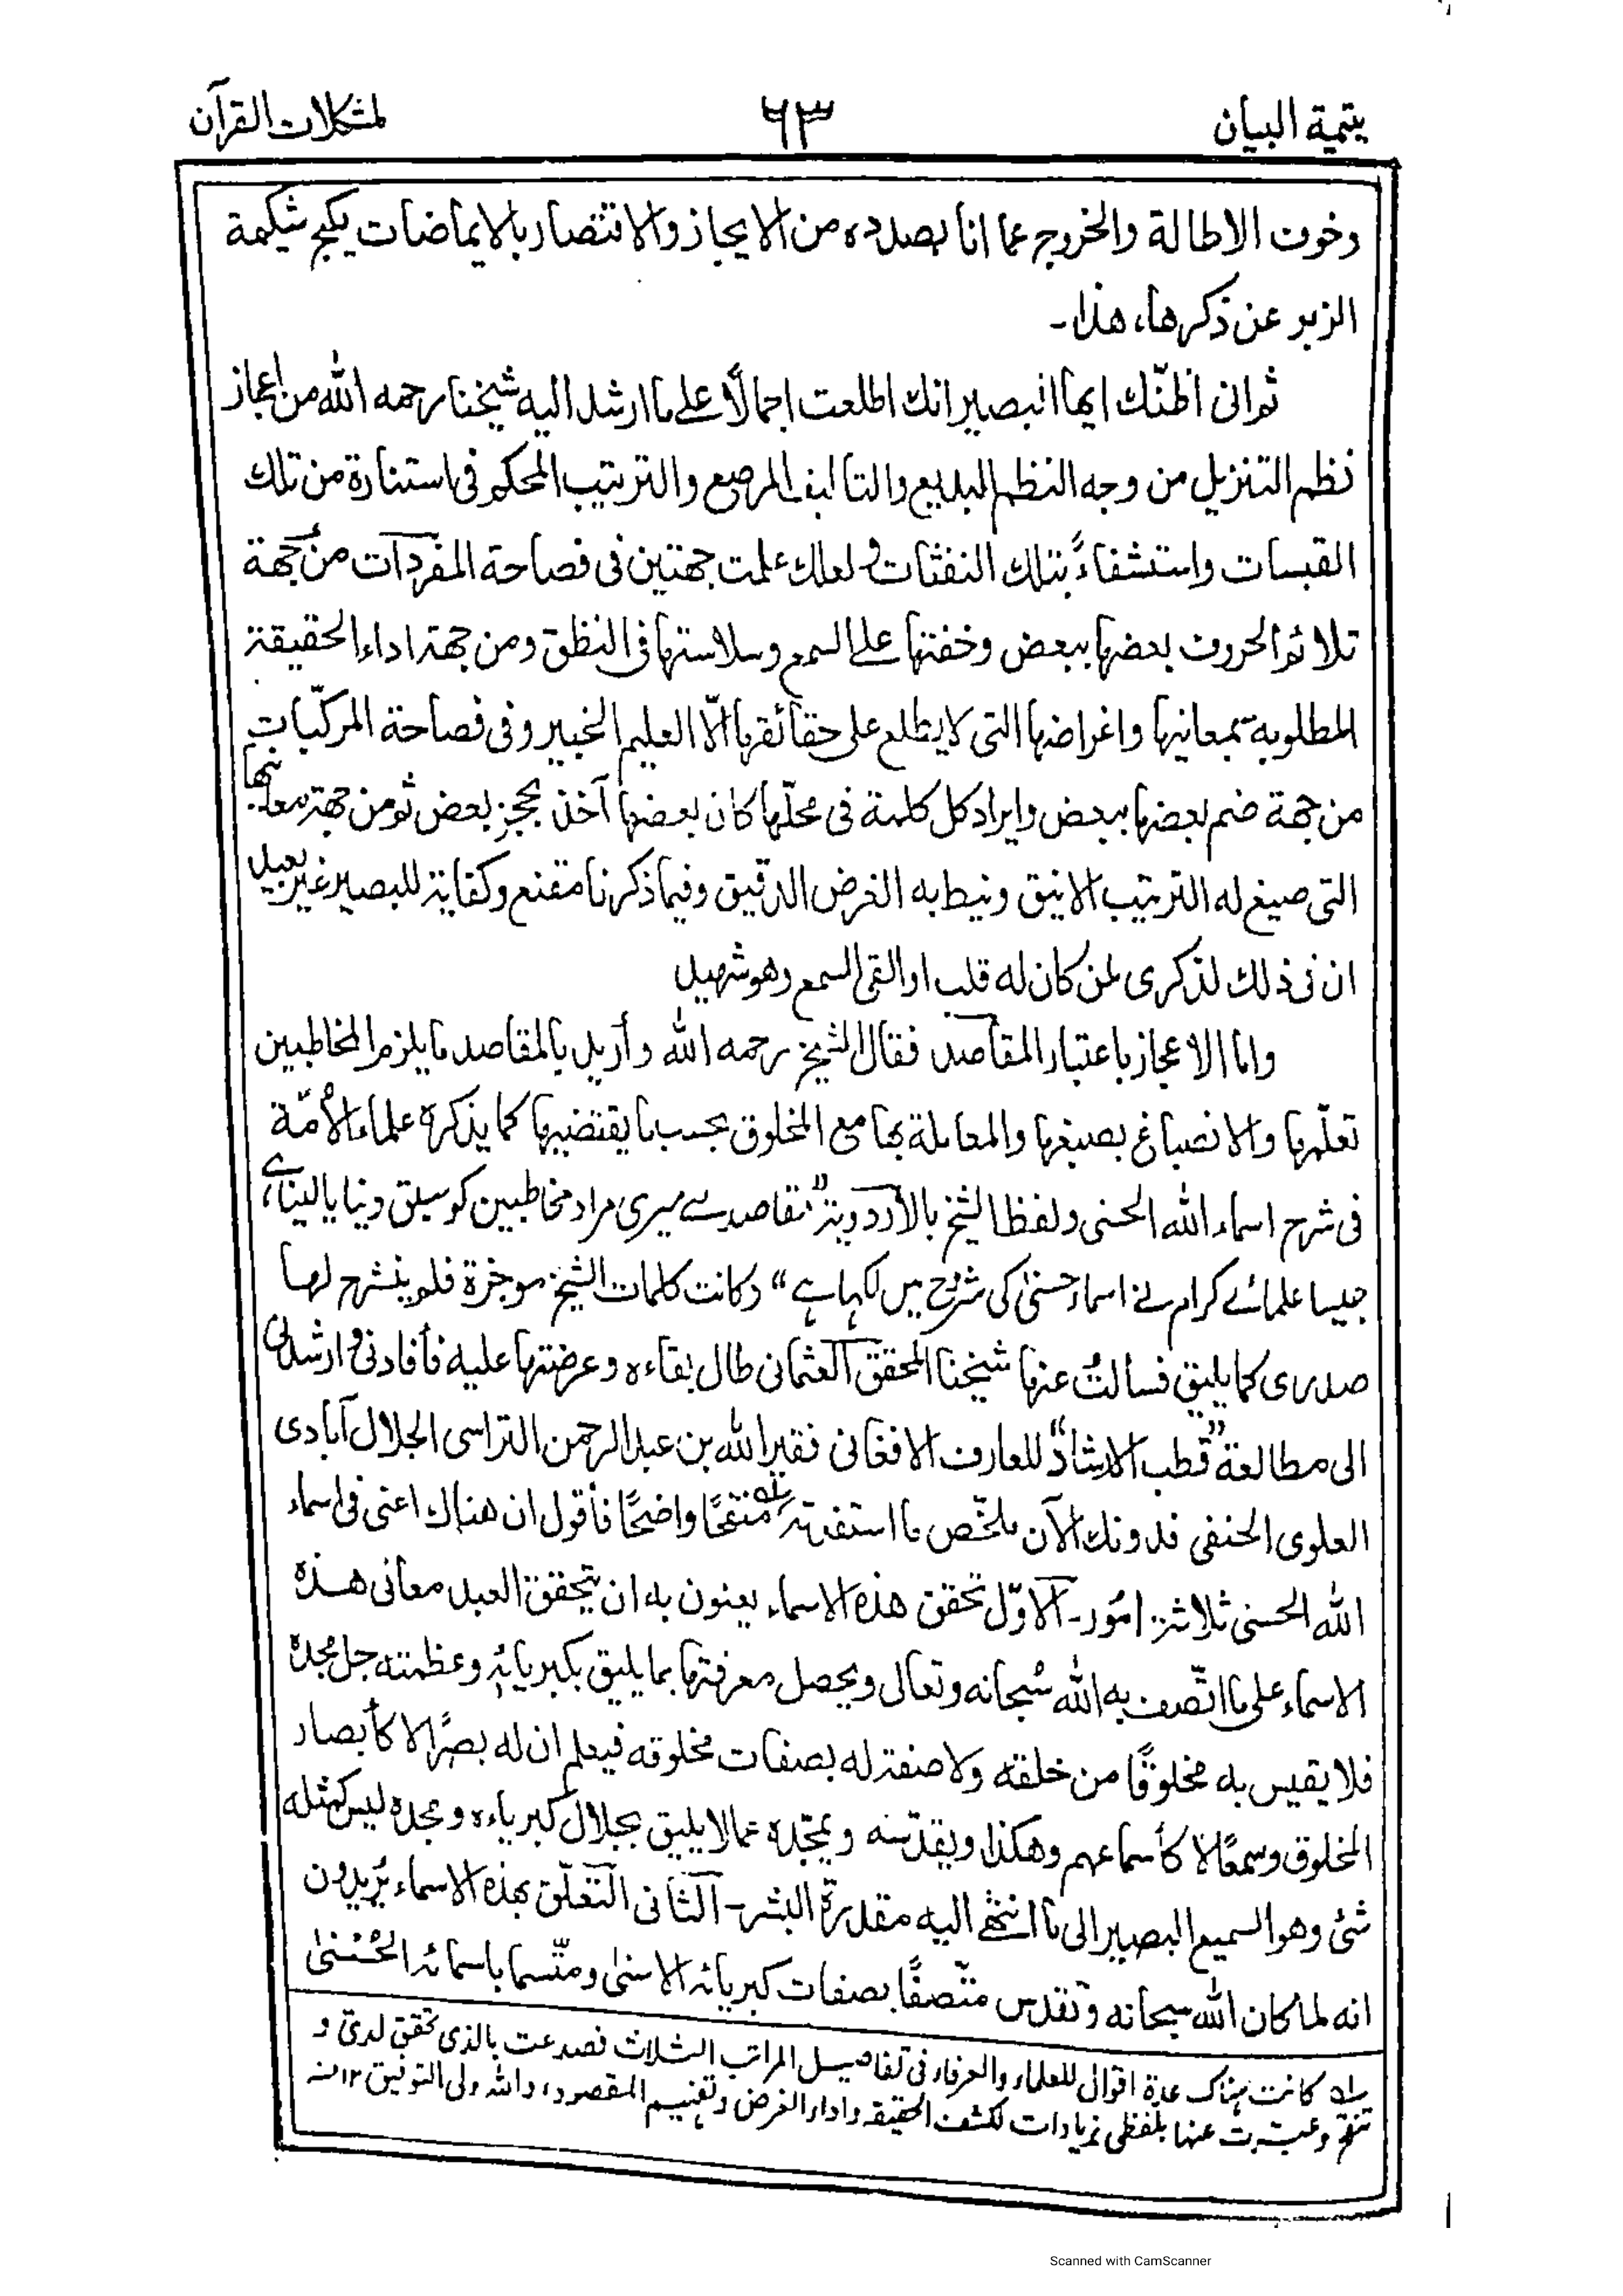 يتيمة البيان
٦٣
لمشكلات القرآن
وخوف الاطالة والخروج عما انا بصدده من الايجاز والاقتصار بالايماضات يكبح شكيمة
الزبر عن ذكرها، هذا۔
ثم انى اظنّك ايها البصير انك اطلعت اجمالًا على ما ارشد اليه شيخنا رحمه الله من اعجاز
نظم التنزيل من وجه النظم البديع والتاليف المرصع والترتيب المحكم فى استنارة من تلك
القبسات واستشفاءً بتلك النفثات ولعلك علمت جهتين فى فصاحة المفردات من جهة
تلائم الحروف بعضها ببعض وخفتها على السمع وسلاستها فى النطق ومن جهة اداء الحقيقة
المطلوبة بمعانيها واغراضها التى لا يطلع على حقائقها الّا العليم الخبير وفى فصاحة المركّبات
من جهة ضم بعضها ببعض وايراد كل كلمة فى محلّها كان بعضها آخذ بحجز بعض ثم من جهة معانيها
التى صيغ له الترتيب الانيق ونيط به الغرض الدقيق وفيما ذكرنا مقنع وكفاية للبصير غير بعيد
ان فى ذلك لذكرى لمن كان له قلب او القى السمع وهو شهيد
واما الاعجاز باعتبار المقاصد فقال الشيخ رحمه الله وأريد بالمقاصد ما يلزم المخاطبين
تعلّمها والانصباغ بصبغها والمعاملة بها مع المخلوق بحسب ما يقتضيها كما يذكره علماء الأمّة
فى شرح اسماء الله الحسنى ولفظ الشيخ بالأردوية "مقاصد سے میری مراد مخاطبین کو سبق دینا یا لینا ہے،
جیسا علمائے کرام نے اسماء حسنیٰ کی شرح میں لکھا ہے" وكانت كلمات الشيخ موجزة فلم ينشرح لها
صدرى كما يليق فسالتُ عنها شيخنا المحقق العثمانى طال بقاءه وعرضتها عليه فأفادنى وارشدنى
الى مطالعة "قطب الارشاد" للعارف الافغانى فقير الله بن عبد الرحمن التراسى الجلال آبادى
العلوى الحنفى فدونك الآن ملخّص ما استفدته سله منقحًا واضحًا فأقول ان هناك اعنى فى اسماء
الله الحسنى ثلاثة امور۔ الاوّل تحقق هذه الاسماء يعنون به ان يتحقق العبد معانى هذه
الاسماء على ما اتّصف به الله سُبحانه وتعالى ويحصل معرفتها بما يليق بكبريائه وعظمته جل مجده
فلا يقيس به مخلوقًا من خلقه ولا صفة له بصفات مخلوقه فيعلم ان له بصرًا لا كأبصار
المخلوق وسمعًا لا كأسماعهم وهكذا ويقدّسه ويمجّده عما لا يليق بجلال كبرياءه ومجده ليس كمثله
شئ وهو السميع البصير الى ما انتهى اليه مقدرة البشر۔ الثانى التعلّق بهذه الاسماء يُريدون
انه لما كان الله سبحانه وتقدس متّصفًا بصفات كبريائه الاسنىٰ ومتّسما باسمائه الحُسنىٰ
سله كانت هناك عدة اقوال للعلماء والعرفاء فى تفاصيل المراتب الثلاث فصدعت بالذى تحقق لدىّ و
تنقح وعبّرت عنها بلفظى بزيادات لكشف الحقيقة واداء الغرض وتفهيم المقصود، والله ولى التوفيق ١٢ منه
Scanned with CamScanner